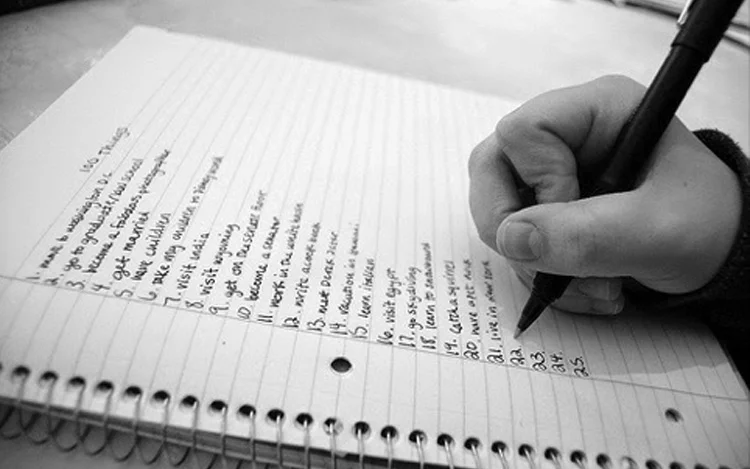 100 Things
1. move to washington D.C.
2. go to graduate/law school
3. become a fabulous photographer
4. get married
5. have children
6. take my children to disney world
7. visit india
8. visit wyoming
9. get on the senate floor
10. become a senator
11. work in the white house
12. write a cook book
13. meet
14. vacation in
15. learn italian
16. visit egypt
17. go skydiving
18. learn to snowboard
19. catch a squirrel
20. have a pet
21. live in new york
22.
23.
24.
25.